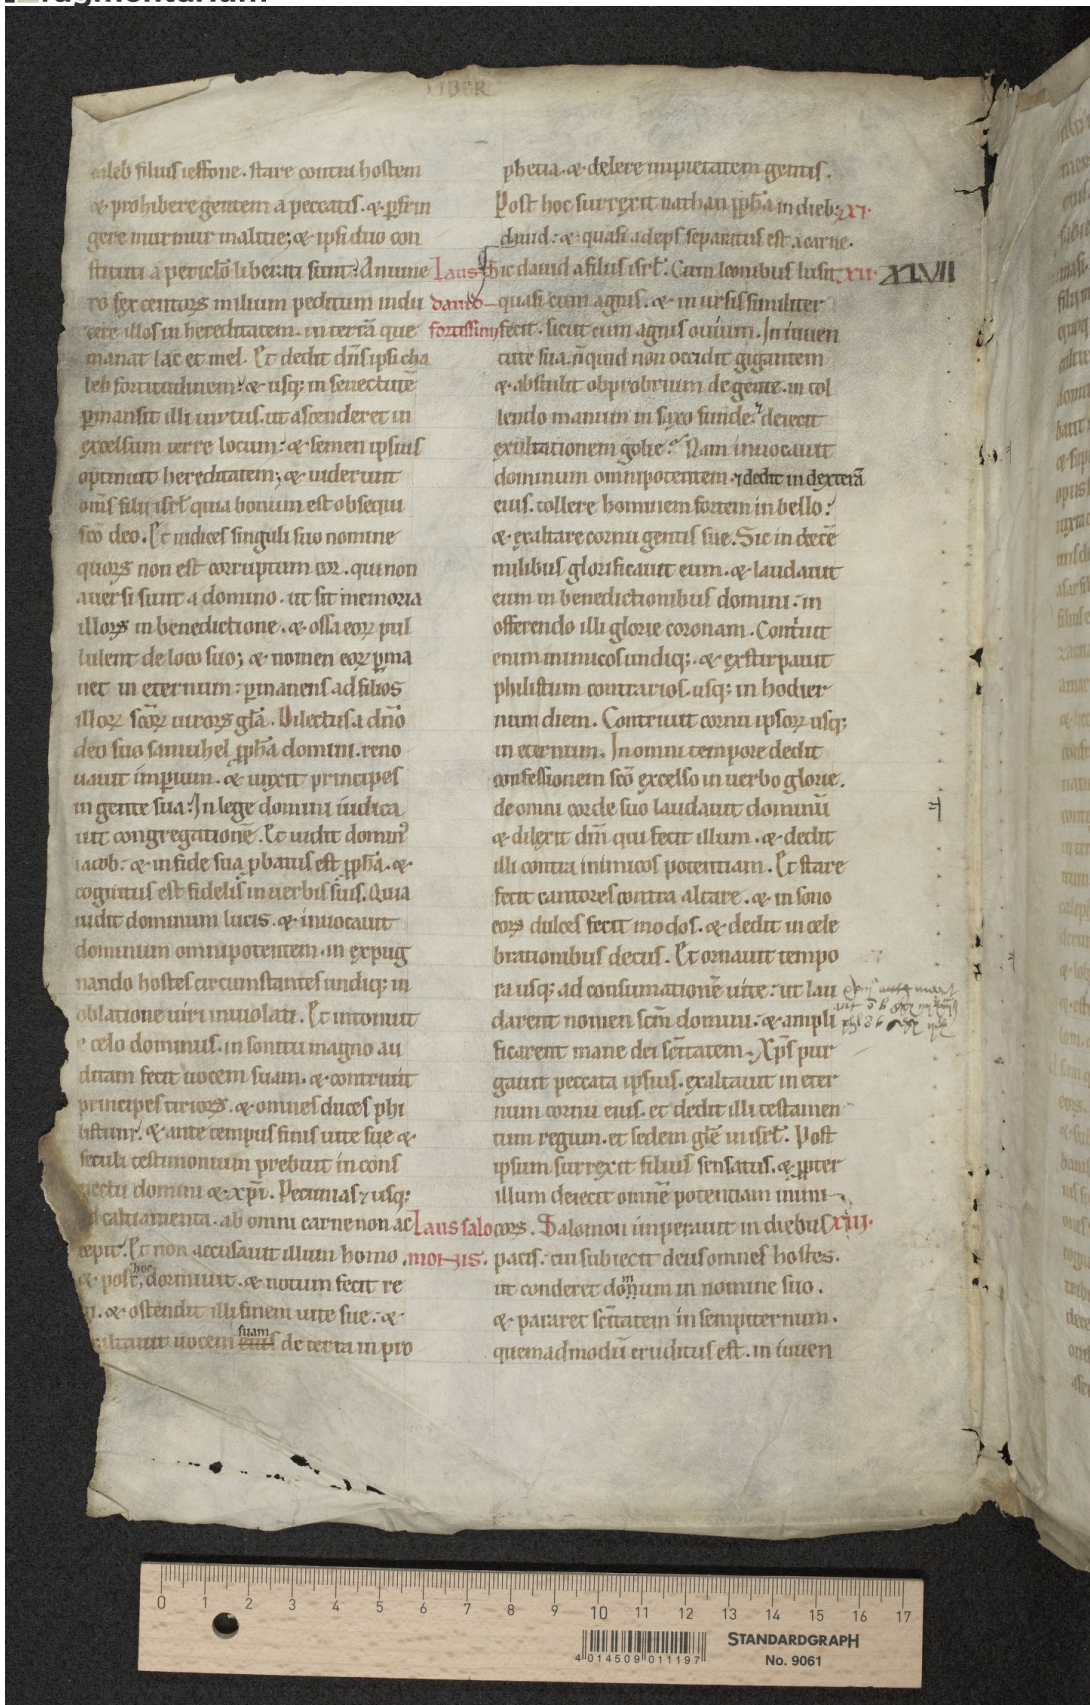 LIBER
aleb filius ieffone. stare contra hostem
& prohibere gentem a peccatis. & ꝑfrin
gere murmur malitie; & ipsi duo con
stituti a periclo liberati sunt. A nume
ro sex centorꝝ milium peditum indu
cere illos in hereditatem. in terrā que
manat lac et mel. Et dedit dn̄s ipsi cha
leb fortitudinem. & usq; in senectutē
ꝑmansit illi uirtus. ut ascenderet in
excelsum terre locum. & semen ipsius
optinuit hereditatem; & uiderunt
om̄s filii isrł quia bonum est obsequi
sc̄o deo. Et iudices singuli suo nomine
quorꝝ non est corruptum cor. qui non
auersi sunt a domino. ut sit memoria
illorꝝ in benedictione. & ossa eorꝝ pul
lulent de loco suo; & nomen eorꝝ ꝑma
net in eternum. ꝑmanens ad filios
illorꝝ sc̄orꝝ uirorꝝ gl̄a. Dilectus a dn̄o
deo suo samuhel ꝓph̄a domini. reno
uauit imꝑium. & unxit principes
in gente sua. In lege domini iudica
uit congregationē. Et uidit domin᾽
iacob. & in fide sua ꝓbatus est ꝓph̄a. &
cognitus est fidelis in uerbis suis. Quia
uidit dominum lucis. & inuocauit
dominum omnipotentem. in expug
nando hostes circumstantes undiq; in
oblatione uiri inuiolati. Et intonuit
e celo dominus. in sonitu magno au
ditam fecit uocem suam. & contriuit
principes tiriorꝝ. & omnes duces phi
listiim. & ante tempus finis uite sue &
seculi testimonium prebuit in cons
pectu domini & xp̄i. Pecunias ⁊ usq;
d caltiamenta. ab omni carne non ac
cepit. Et non accusauit illum homo.
& post hoc dormiuit. & notum fecit re
gi. & ostendit illi finem uite sue. &
altauit uocem eius suam de terra in pro
phetia. & delere impietatem gentis.
Post hoc surrexit nathan ꝓph̄a in dieb; XI.
dauid. & quasi adeps separatus est a carne.
Laus Sic dauid a filiis isrł. Cum leonibus lusit XII. XLVII
dauid quasi cum agnis. & in ursis similiter
fortissimi fecit. sicut cum agnis ouium. In iuuen
tute sua. nūquid non occidit gigantem
& abstulit obprobrium de gente. in tol
lendo manum in saxo funde. deiecit
exultationem golie. Nam inuocauit
dominum omnipotentem. ⁊ dedit in dexterā
eius. tollere hominem fortem in bello.
& exaltare cornu gentis sue. Sic in decē
milibus glorificauit eum. & laudauit
eum in benedictionibus domini. in
offerendo illi glorie coronam. Contriuit
enim inimicos undiq;. & exstirpauit
philistiim contrarios. usq; in hodier
num diem. Contriuit cornu ipsorꝝ usq;
in eternum. In omni tempore dedit
confessionem sc̄o excelso in uerbo glorie.
de omni corde suo laudauit dominū
& dilexit dm̄ qui fecit illum. & dedit
illi contra inimicos potentiam. Et stare
fecit cantores contra altare. & in sono
eorꝝ dulces fecit modos. & dedit in cele
brationibus decus. Et ornauit tempo
ra usq; ad consumationē uite. ut lau
darent nomen sc̄m domini. & ampli
ficarent mane dei sc̄itatem. Xp̄s pur
gauit peccata ipsius. exaltauit in eter
num cornu eius. et dedit illi testamen
tum regum. et sedem gl̄e in isrł. Post
ipsum surrexit filius sensatus. & ꝓpter
illum deiecit omnē potentiam inimi
Laus salo corꝝ. Salomon imperauit in diebus XIII.
monis. pacis. cui subiecit deus omnes hostes.
ut conderet domum in nomine suo.
& pararet sc̄itatem in sempiternum.
quemadmodū eruditus est. in iuuen
0 1 2 3 4 5 6 7 8 9 10 11 12 13 14 15 16 17
STANDARDGRAPH
No. 9061
4 014509 011197